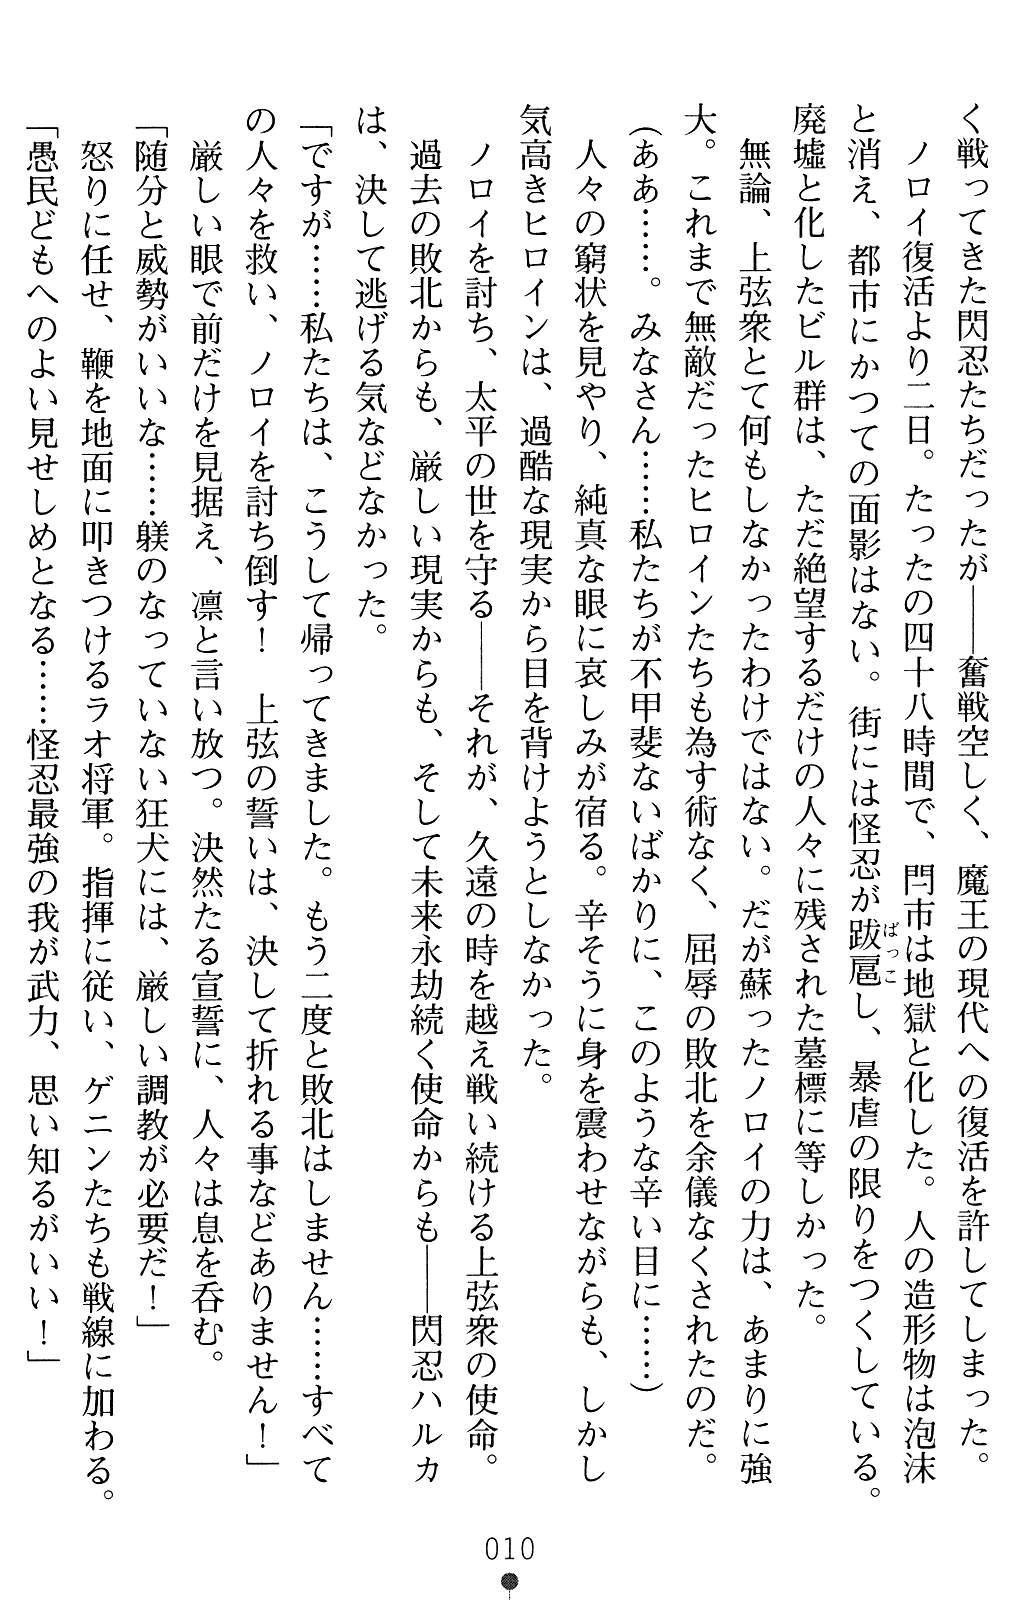 く戦ってきた閃忍たちだったが――奮戦空しく、魔王の現代への復活を許してしまった。
ノロイ復活より二日。たったの四十八時間で、閂市は地獄と化した。人の造形物は泡沫
と消え、都市にかつての面影はない。街には怪忍が跋扈し、暴虐の限りをつくしている。
ばっこ
廃墟と化したビル群は、ただ絶望するだけの人々に残された墓標に等しかった。
無論、上弦衆とて何もしなかったわけではない。だが蘇ったノロイの力は、あまりに強
大。これまで無敵だったヒロインたちも為す術なく、屈辱の敗北を余儀なくされたのだ。
(ああ……。みなさん……私たちが不甲斐ないばかりに、このような辛い目に……)
人々の窮状を見やり、純真な眼に哀しみが宿る。辛そうに身を震わせながらも、しかし
気高きヒロインは、過酷な現実から目を背けようとしなかった。
ノロイを討ち、太平の世を守る――それが、久遠の時を越え戦い続ける上弦衆の使命。
過去の敗北からも、厳しい現実からも、そして未来永劫続く使命からも――閃忍ハルカ
は、決して逃げる気などなかった。
「ですが……私たちは、こうして帰ってきました。もう二度と敗北はしません……すべて
の人々を救い、ノロイを討ち倒す！　上弦の誓いは、決して折れる事などありません！」
厳しい眼で前だけを見据え、凛と言い放つ。決然たる宣誓に、人々は息を呑む。
「随分と威勢がいいな……躾のなっていない狂犬には、厳しい調教が必要だ！」
怒りに任せ、鞭を地面に叩きつけるラオ将軍。指揮に従い、ゲニンたちも戦線に加わる。
「愚民どもへのよい見せしめとなる……怪忍最強の我が武力、思い知るがいい！」
010